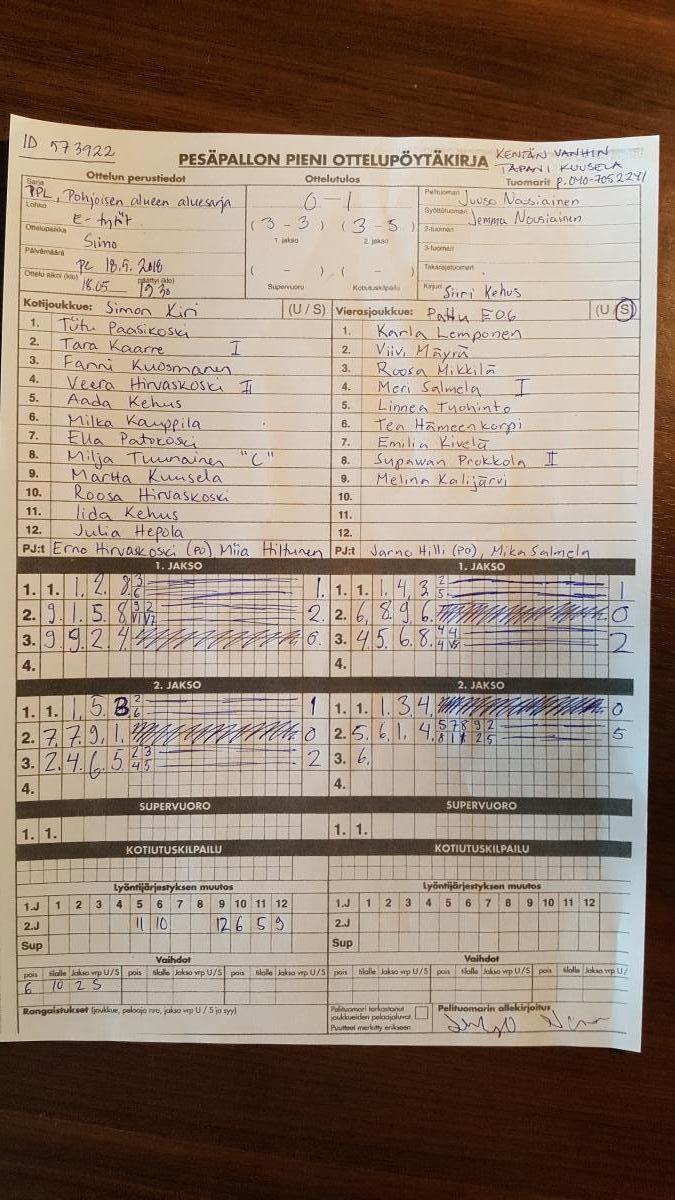 ID 573922
PESÄPALLON PIENI OTTELUPÖYTÄKIRJA
KENTÄN VANHIN
TAPANI KUUSELA
Ottelun perustiedot
Ottelutulos
Tuomarit
Sarja
PPL, Pohjoisen alueen aluesarja
Lohko
E-tytöt
Ottelupaikka
Simo
Päivämäärä
pe 18.5.2018
Ottelu alkoi (klo) 18.05 päättyi (klo) 1930
0-1
(3-3) (3-5)
1. jakso 2. jakso
( - ) ( - )
Supervuoro Kotiutuskilpailu
Pelituomari Juuso Nousiainen
Syöttötuomari Jemma Nousiainen
2-tuomari
3-tuomari
Takarajatuomari
Kirjuri Siiri Kehus
Kotijoukkue: Simon Kiri (U / S)
1. Tütü Paasikoski
2. Tara Kaarre I
3. Fanni Kuosmanen
4. Veera Hirvaskoski II
5. Aada Kehus
6. Milka Kauppila
7. Ella Patokoski
8. Milja Tuunainen "C"
9. Martta Kuusela
10. Roosa Hirvaskoski
11. Iida Kehus
12. Julia Hepola
PJ:t Erno Hirvaskoski (PO), Miia Hiltunen
Vierasjoukkue: Pattu E06 (U / S)
1. Karla Lemponen
2. Viivi Mäyrä
3. Roosa Mikkilä
4. Meri Salmela I
5. Linnea Tuohinto
6. Tea Hämeenkorpi
7. Emilia Kivelä
8. Supawan Prokkola II
9. Melina Kalijärvi
10.
11.
12.
PJ:t Jarno Hilli (PO), Mika Salmela
1. JAKSO
1. 1. 1. 2. 8 3 6 1.
2. 9. 1. 5. 8 2.
3. 9. 9. 2. 4. 0.
4.
1. JAKSO
1. 1. 1. 4. 3. 2 5 1
2. 6. 8. 9. 6. 0
3. 4. 5. 6. 8. 2
4.
2. JAKSO
1. 1. 1. 5. 3. 2 6 1
2. 7. 7. 9. 1. 0
3. 2. 4. 6. 5. 2 3 4 5 2
4.
2. JAKSO
1. 1. 1. 3. 4. 0
2. 5. 6. 1. 4. 5 7 8 9 2 5
3. 6.
4.
SUPERVUORO
1. 1.
SUPERVUORO
1. 1.
KOTIUTUSKILPAILU
KOTIUTUSKILPAILU
Lyöntijärjestyksen muutos
1.J 1 2 3 4 5 6 7 8 9 10 11 12
2.J 11 10 12 6 5 9
Sup
Lyöntijärjestyksen muutos
1.J 1 2 3 4 5 6 7 8 9 10 11 12
2.J
Sup
Vaihdot
pois tilalle Jakso vrp U/S pois tilalle Jakso vrp U/S pois tilalle Jakso vrp U/S
6 10 2 S
Vaihdot
pois tilalle Jakso vrp U/S pois tilalle Jakso vrp U/S pois tilalle Jakso vrp U/
Rangaistukset (joukkue, pelaaja nro, jakso vrp U / S ja syy)
Pelituomari tarkastanut
joukkueiden pelaajaluvat
Puutteet merkitty erikseen
Pelituomarin allekirjoitus